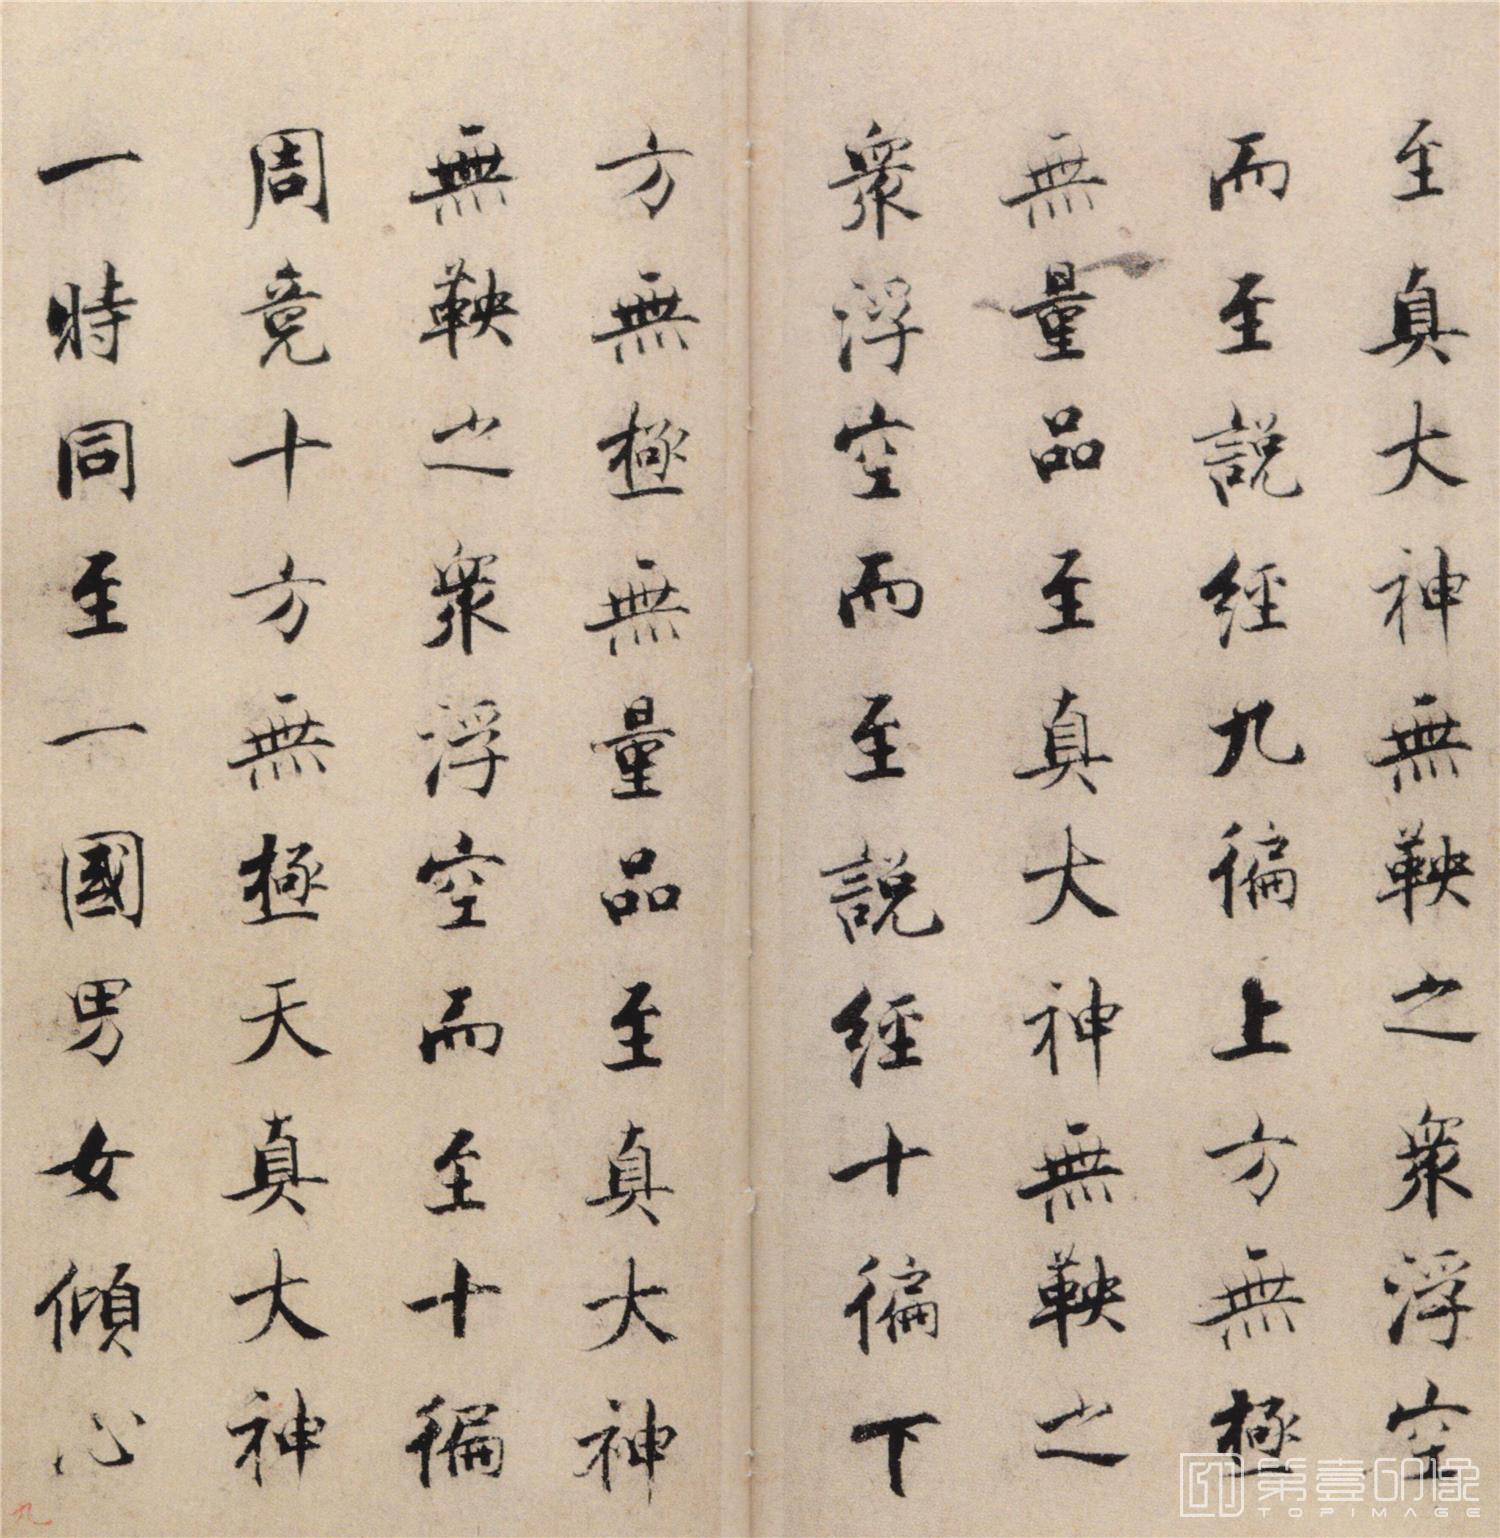 至真大神無鞅之衆浮空
而至說經九徧上方無極
無量品至真大神無鞅之
衆浮空而至說經十徧下
方無極無量品至真大神
無鞅之衆浮空而至十徧
周竟十方無極天真大神
一時同至一國男女傾心
九
第壹印像
TOPIMAGE